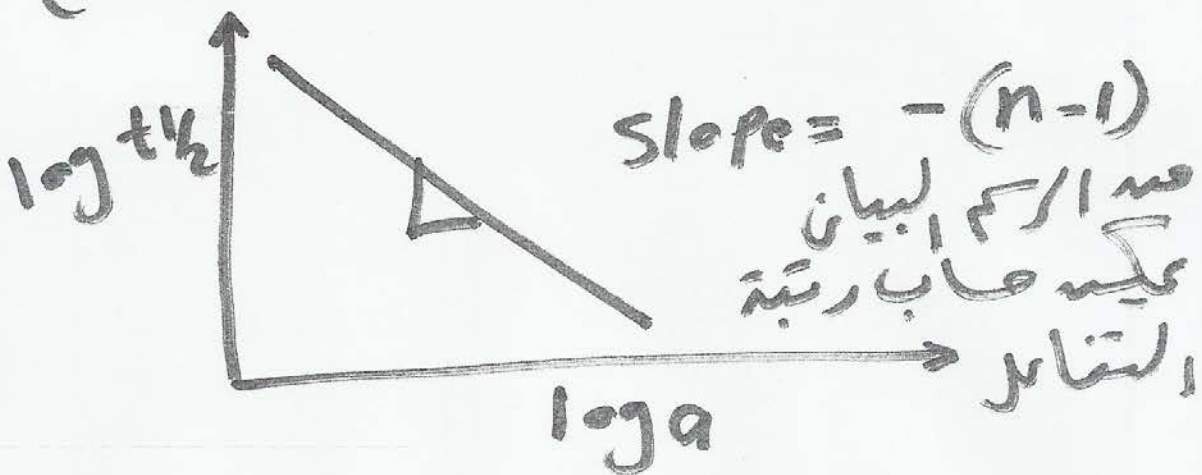 log t½
slope = -(n-1)
من الرسم البيان
يمكن حساب رتبة
التفاعل
log a